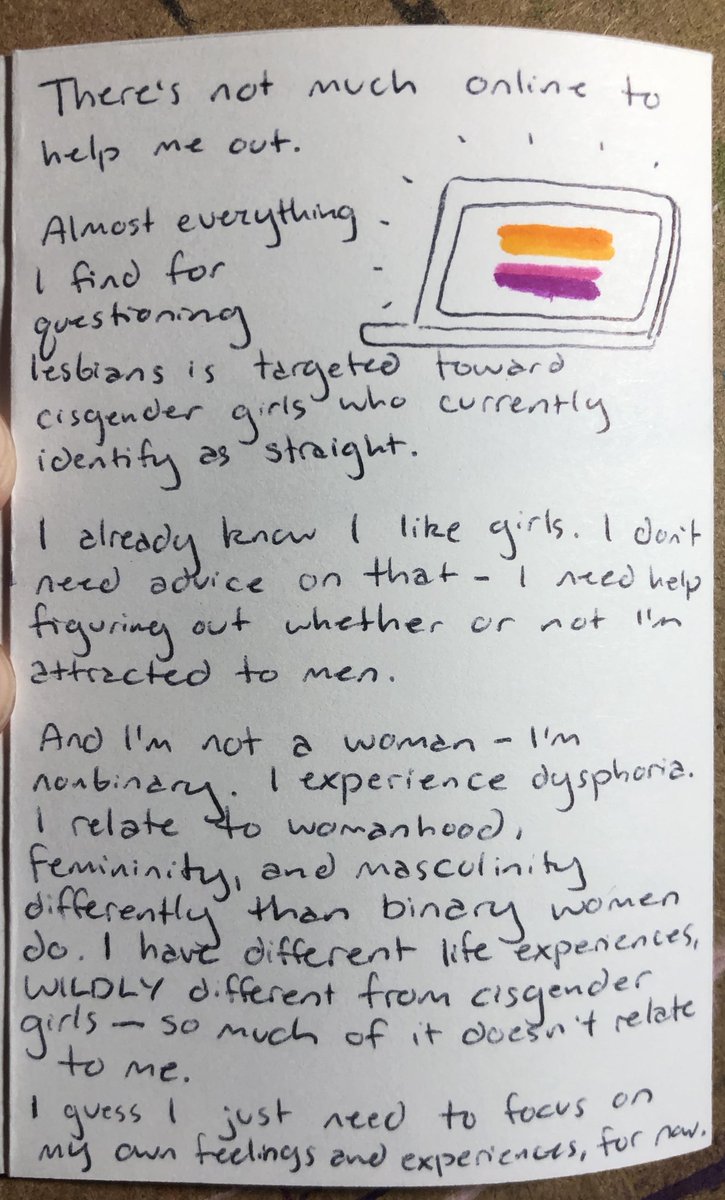 There's not much online to
help me out.
Almost everything
I find for
questioning
lesbians is targeted toward
cisgender girls who currently
identify as straight.
I already know I like girls. I don't
need advice on that - I need help
figuring out whether or not I'm
attracted to men.
And I'm not a woman - I'm
nonbinary. I experience dysphoria.
I relate to womanhood,
femininity, and masculinity
differently than binary women
do. I have different life experiences,
WILDLY different from cisgender
girls - so much of it doesn't relate
to me.
I guess I just need to focus on
my own feelings and experiences, for now.